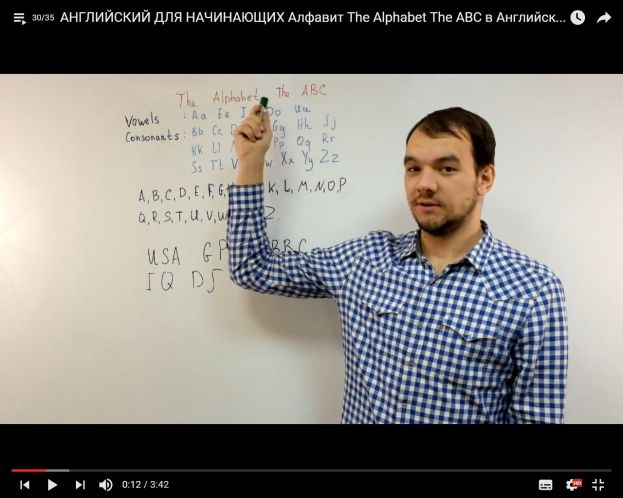 30/35 АНГЛИЙСКИЙ ДЛЯ НАЧИНАЮЩИХ Алфавит The Alphabet The ABC в Английск...
The Alphabet The ABC
Vowels : Aa Ee I Oo Uu
Consonants : Bb Cc D Gg Hh Jj
Kk Ll Pp Qq Rr
Ss Tt V w Xx Yy Zz
A, B, C, D, E, F, G, K, L, M, N, O, P
Q, R, S, T, U, V, W Z
USA GP BBC
IQ DJ
0:12 / 3:42
HD